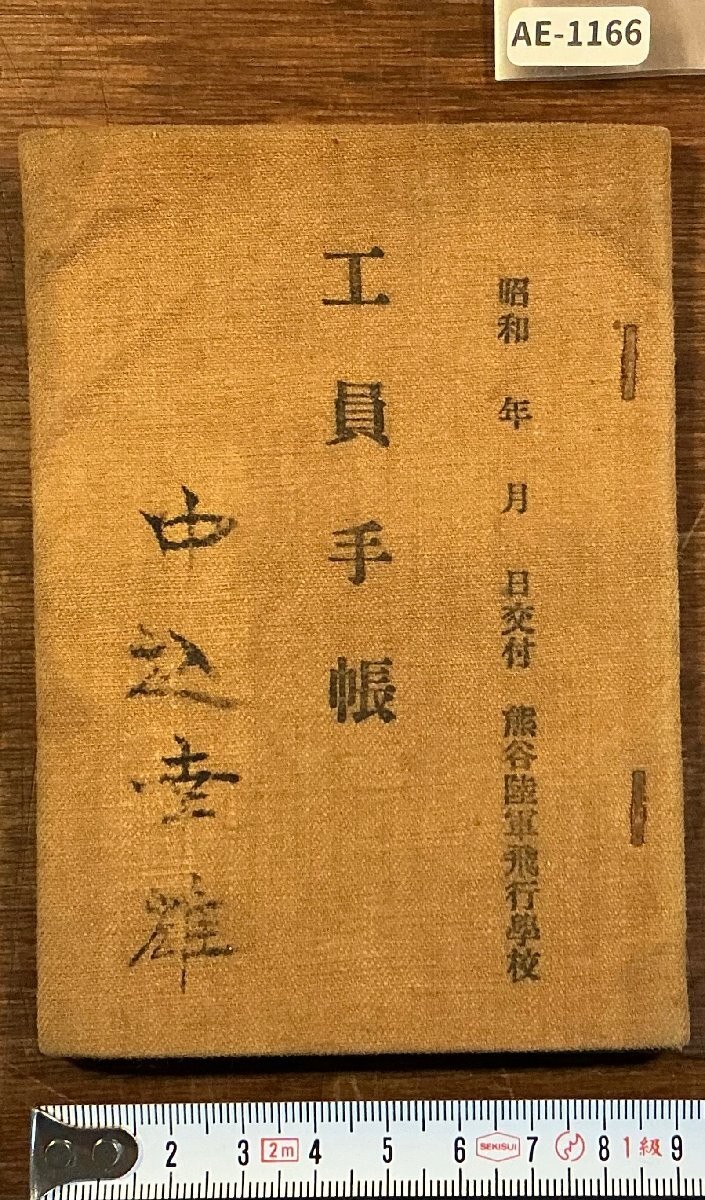 AE-1166
昭和 年 月 日交付 熊谷陸軍飛行學校
工員手帳
中込幸雄
2 3 2m 4 5 6 SEKISUI 7 8 1級 9